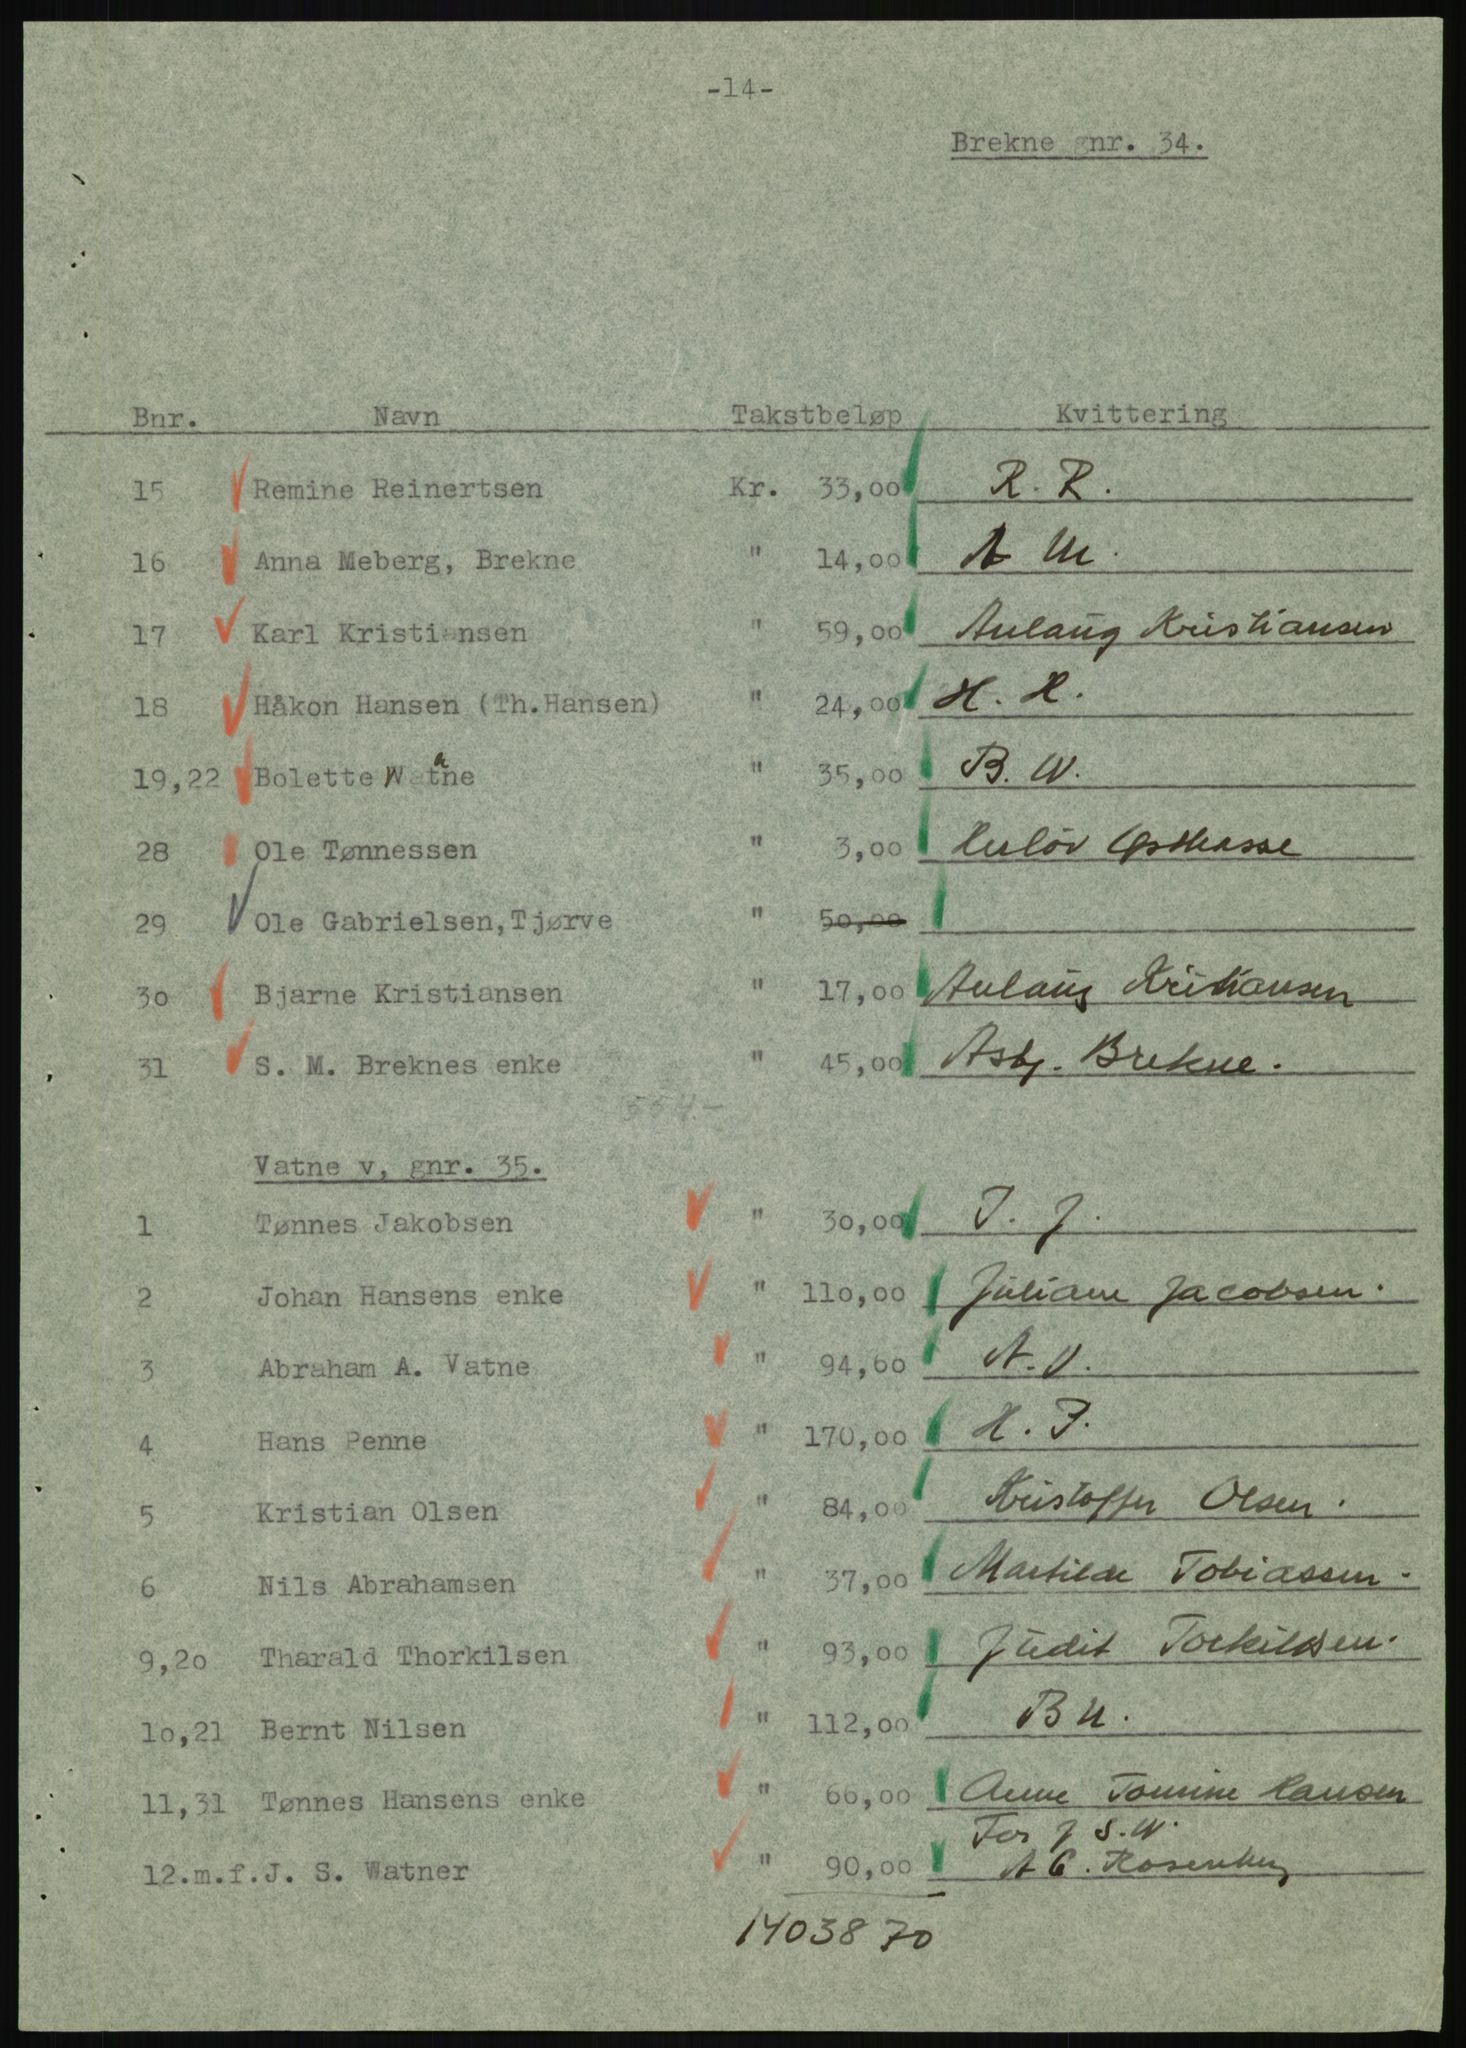 -14-
Brekne gnr. 34.
Bnr. Navn Takstbeløp Kvittering
15 Remine Reinertsen Kr. 33,00 R. R.
16 Anna Meberg, Brekne " 14,00 A M.
17 Karl Kristiansen " 59,00 Aulaug Kristiansen
18 Håkon Hansen (Th.Hansen) " 24,00 H. H.
19,22 Bolette Watne " 35,00 B. W.
28 Ole Tønnessen " 3,00
29 Ole Gabrielsen,Tjørve " 50,00
30 Bjarne Kristiansen " 17,00 Aulaug Kristiansen
31 S. M. Breknes enke " 45,00 Asbj. Brekne.
554.-
Vatne v, gnr. 35.
1 Tønnes Jakobsen " 30,00 T. J.
2 Johan Hansens enke " 110,00 Juliane Jacobsen.
3 Abraham A. Vatne " 94,60 A. V.
4 Hans Penne " 170,00 H. P.
5 Kristian Olsen " 84,00 Kristoffer Olsen.
6 Nils Abrahamsen " 37,00 Mathilde Tobiassen.
9,20 Tharald Thorkilsen " 93,00 Judit Torkildsen.
10,21 Bernt Nilsen " 112,00 B N.
11,31 Tønnes Hansens enke " 66,00 Anne Tomine Hansen
For J S. W.
12.m.f.J. S. Watner " 90,00 A C. Rosenberg
14038 70